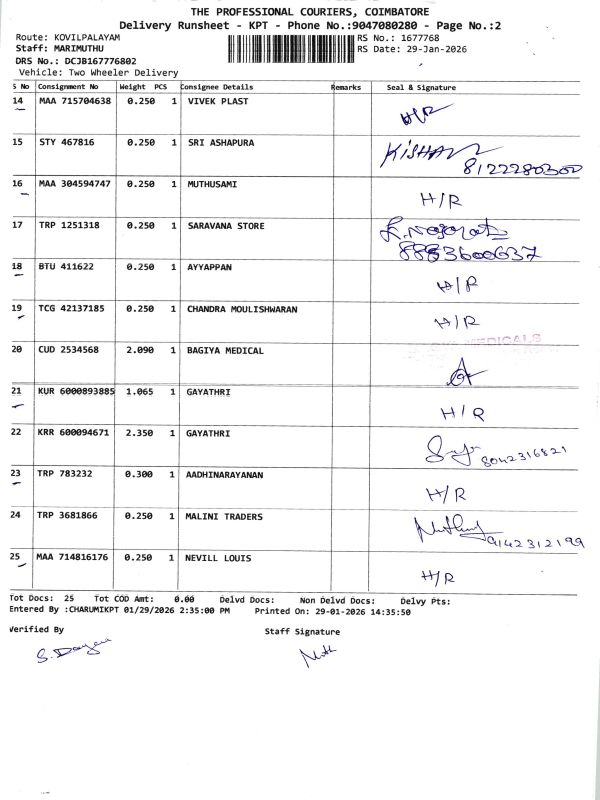 THE PROFESSIONAL COURIERS, COIMBATORE
Delivery Runsheet - KPT - Phone No.:9047080280 - Page No.:2
Route: KOVILPALAYAM RS No.: 1677768
Staff: MARIMUTHU RS Date: 29-Jan-2026
DRS No.: DCJB167776802
Vehicle: Two Wheeler Delivery
S No Consignment No Weight PCS Consignee Details Remarks Seal & Signature
14 MAA 715704638 0.250 1 VIVEK PLAST H/R
15 STY 467816 0.250 1 SRI ASHAPURA KISHAN
8122280300
16 MAA 304594747 0.250 1 MUTHUSAMI H/R
17 TRP 1251318 0.250 1 SARAVANA STORE
8883600637
18 BTU 411622 0.250 1 AYYAPPAN H/R
19 TCG 42137185 0.250 1 CHANDRA MOULISHWARAN H/R
MEDICALS
20 CUD 2534568 2.090 1 BAGIYA MEDICAL
21 KUR 6000893885 1.065 1 GAYATHRI H/R
22 KRR 600094671 2.350 1 GAYATHRI 8042316821
23 TRP 783232 0.300 1 AADHINARAYANAN H/R
24 TRP 3681866 0.250 1 MALINI TRADERS 9142312199
25 MAA 714816176 0.250 1 NEVILL LOUIS H/R
Tot Docs: 25 Tot COD Amt: 0.00 Delvd Docs: Non Delvd Docs: Delvy Pts:
Entered By :CHARUMIKPT 01/29/2026 2:35:00 PM Printed On: 29-01-2026 14:35:50
Verified By Staff Signature